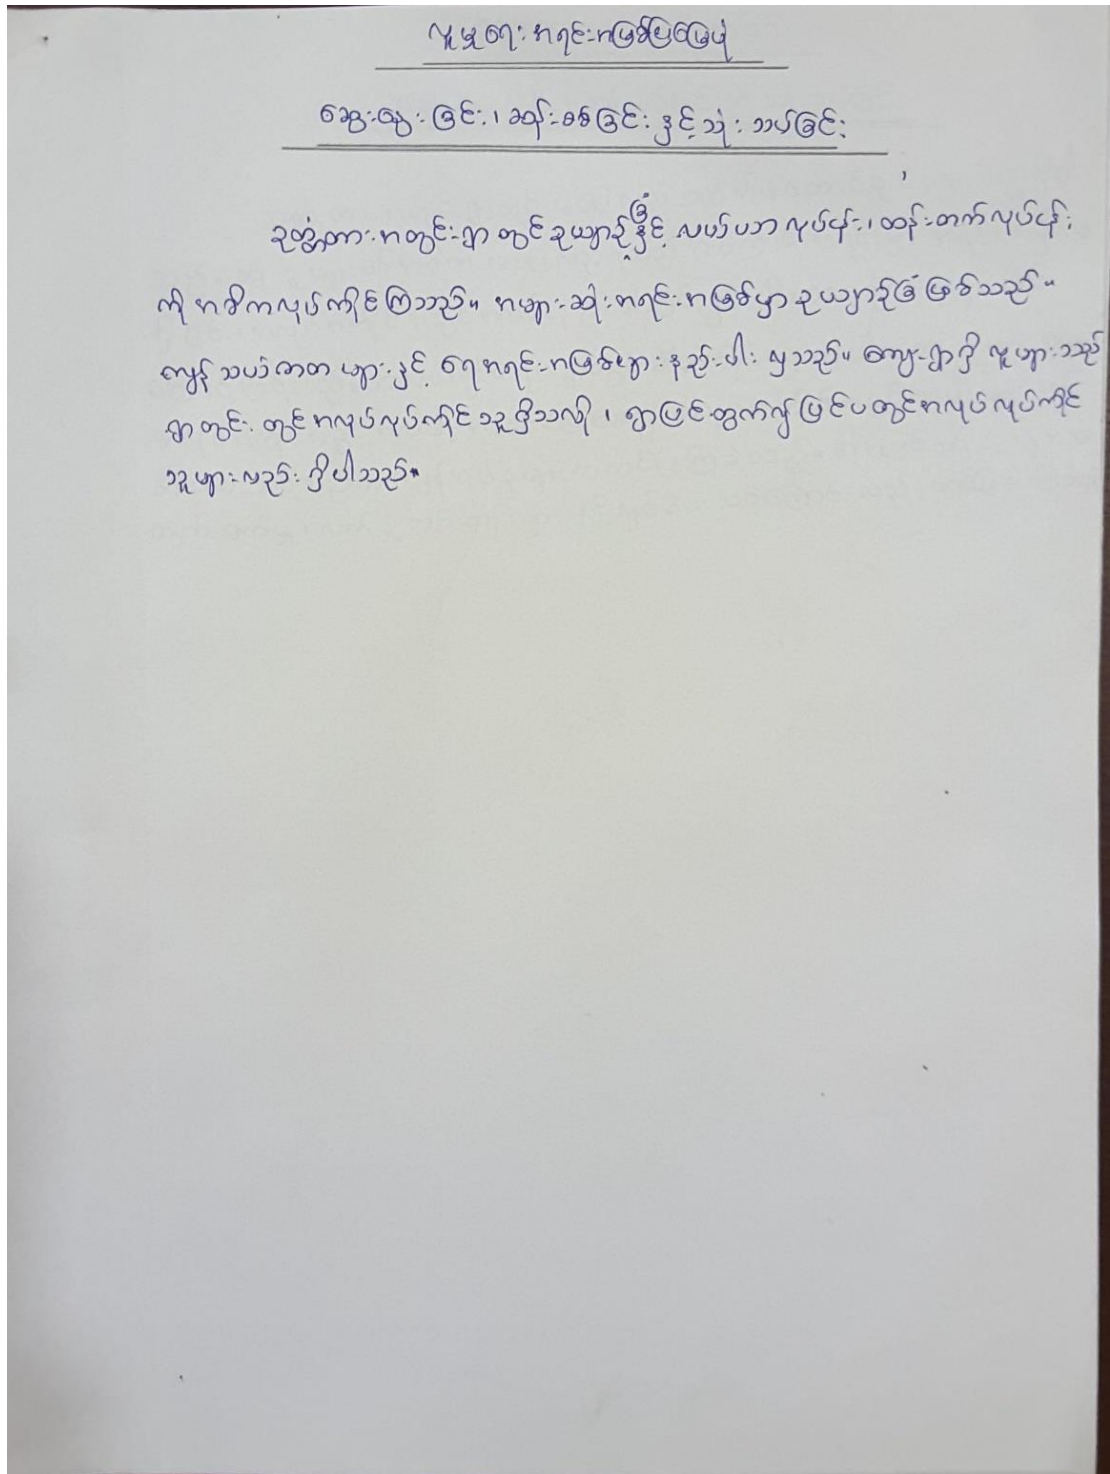 လူမှုရေး အရင်းအမြစ်ပြမြေပုံ
ဆွေးနွေးခြင်း၊ ဆန်းစစ်ခြင်း နှင့် သုံးသပ်ခြင်း
ဥတ္တံတားအတွင်းရွာတွင် ဥယျာဉ်ခြံနှင့် လယ်ယာလုပ်ငန်း၊ ထန်းတက်လုပ်ငန်း
ကို အဓိကလုပ်ကိုင်ကြသည်။ အများဆုံးအရင်းအမြစ်မှာ ဥယျာဉ်ခြံဖြစ်သည်။
ကျွန်သယံဇာတများနှင့် ရေအရင်းအမြစ်များ နည်းပါးလှသည်။ ကျေးရွာရှိ လူများသည်
ရွာတွင်းတွင်အလုပ်လုပ်ကိုင်သူရှိသလို၊ ရွာပြင်ထွက်၍ ပြင်ပတွင်အလုပ်လုပ်ကိုင်
သူများလည်းရှိပါသည်။